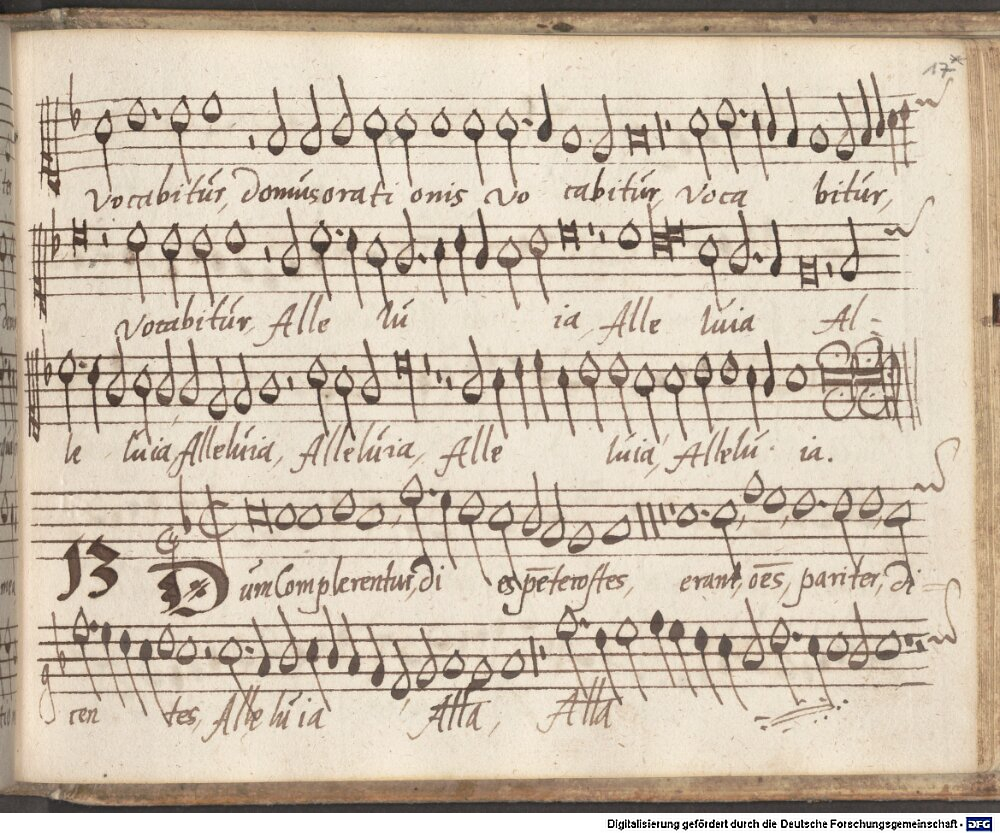 17
vocabitur, domus orati onis vo cabitur, voca bitur,
vocabitur, Alle lu ia, Alle luia Al-
le luia, Alleluia, Alleluia, Alle luia, Allelu ia.
13 Dum Complerentur, di es pētecostes, erant, oēs, pariter, di=
cen tes, Alle lu ia Alla, Alla
Digitalisierung gefördert durch die Deutsche Forschungsgemeinschaft - DFG